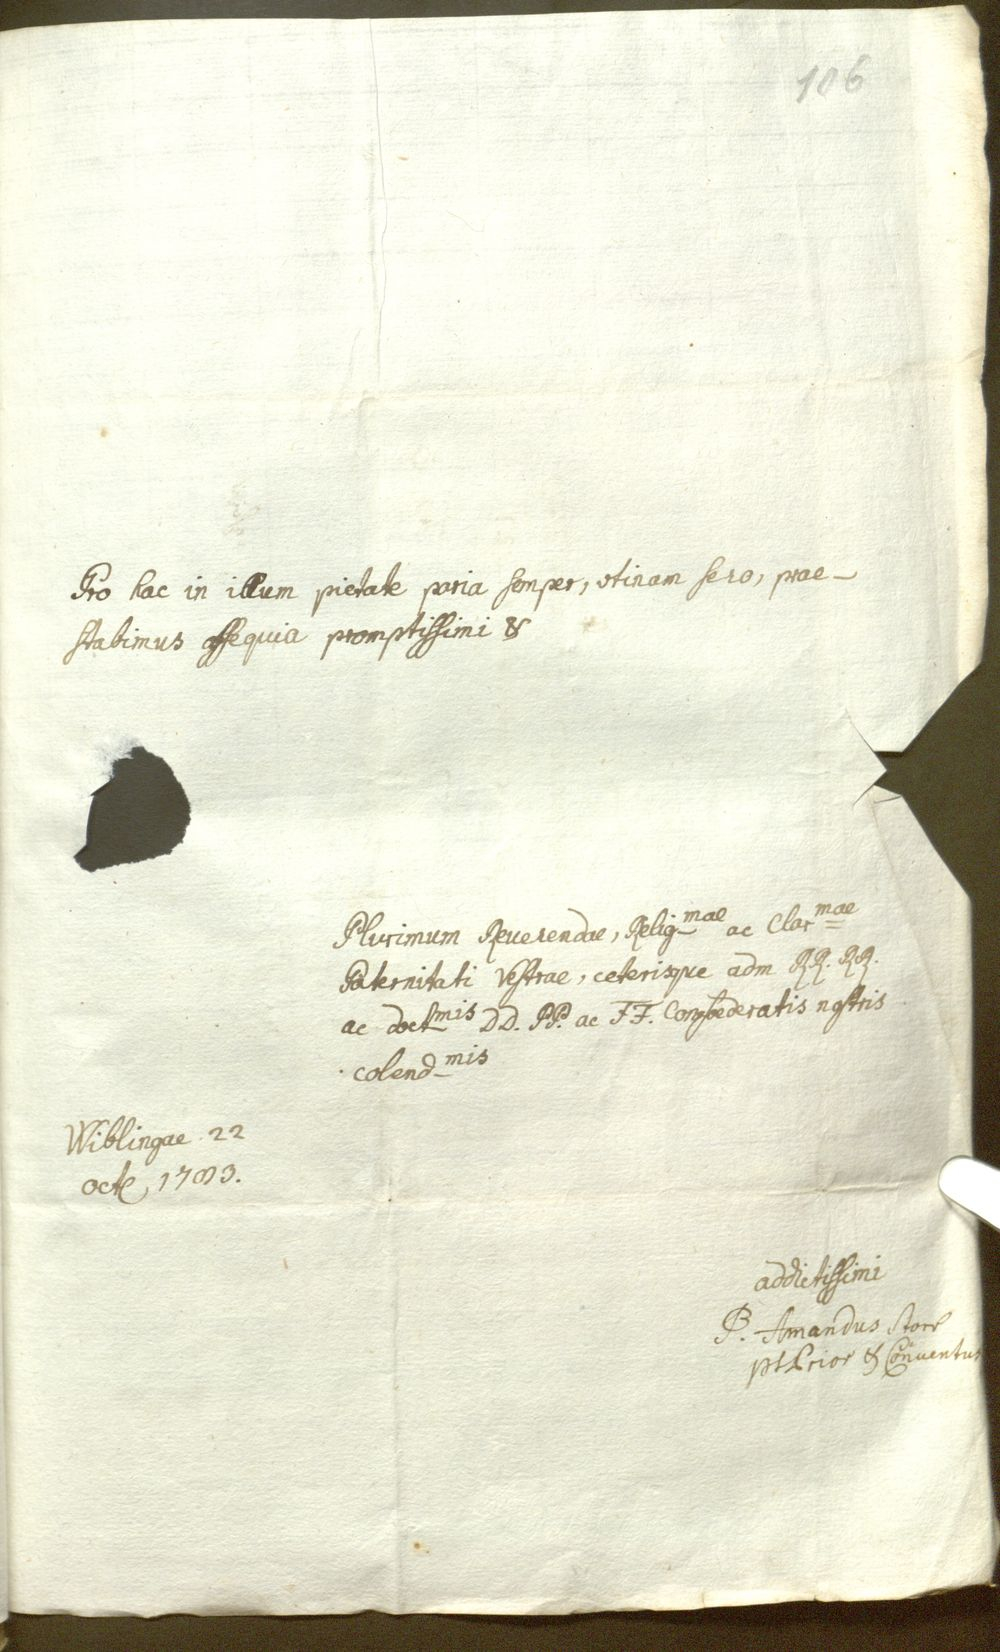 106
Pro hac in illum pietate paria semper, utinam sero, prae-
stabimus obsequia promptissimi &
Plurimum Reverendae, Relig-mae ac Clarmae
Paternitati Vestrae, ceterisque adm RR. RR.
ac doctmis DD. PP. ac FF. Confoederatis nostris
colend-mis
Wiblingae 22
octb, 1783.
addictissimi
P. Amandus Storr
pt Prior & Conventus